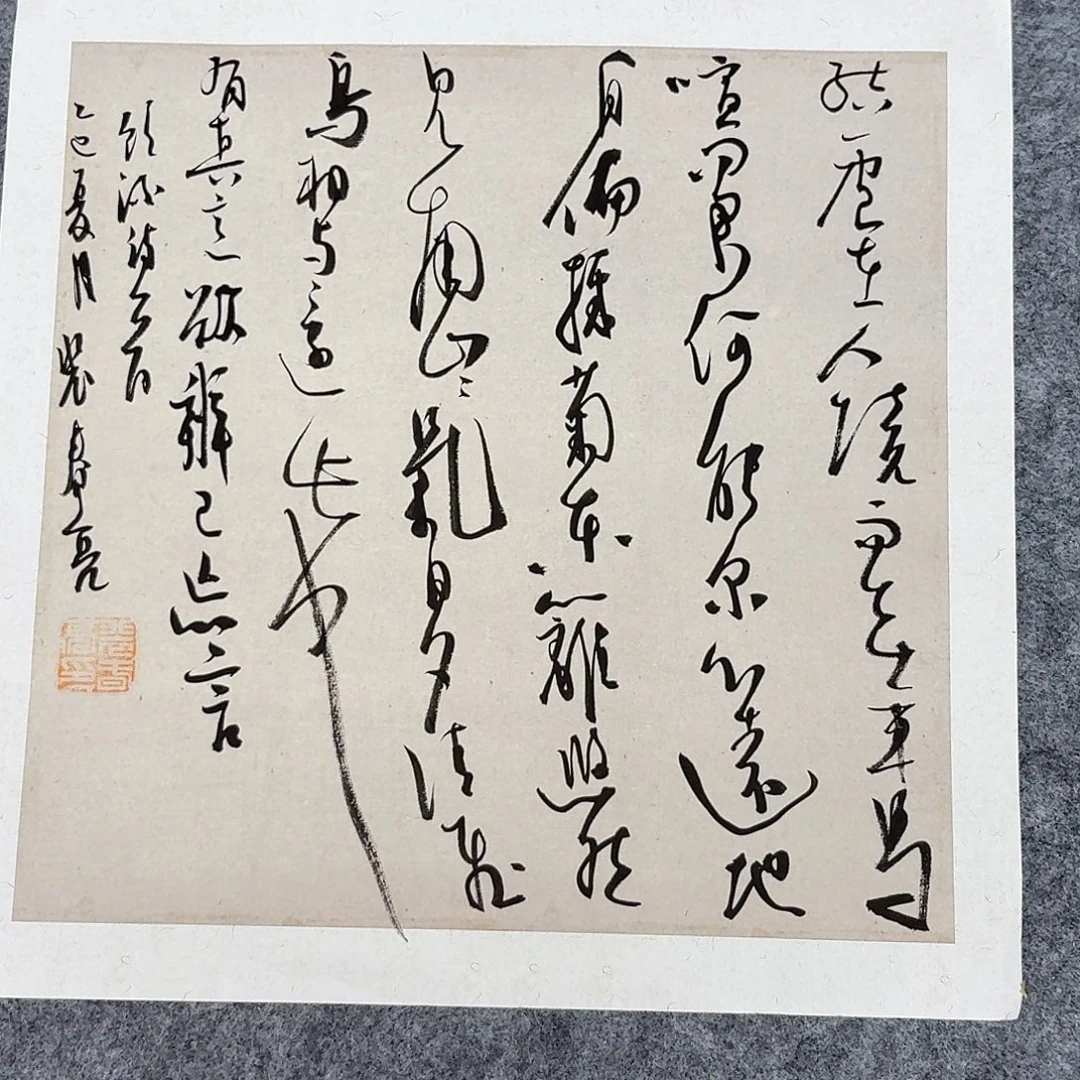 結廬在人境而無車馬
喧問君何能尔心遠地
自偏採菊东籬悠然
見南山〻氣日夕佳飛
鳥相與還此中
有真意欲辨已忘言
詩
乙巳夏月春亮